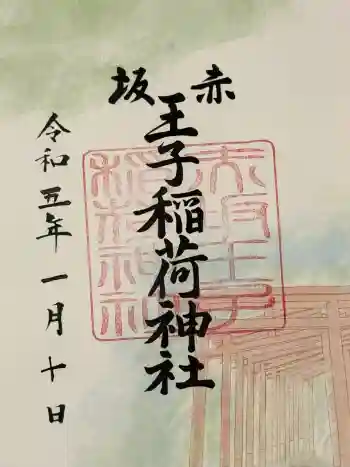 赤坂
王子稲荷神社
令和五年一月十日